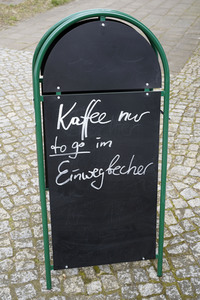 Kaffee nur
to go im
Einwegbecher